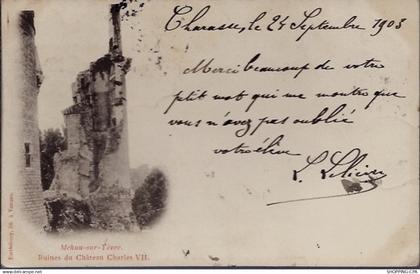 Charasse, le 24 Septembre 1903
Merci beaucoup de votre
p'tit mot qui me montre que
vous n'avez pas oublié
votre élève
Mehun-sur-Yèvre.
Ruines du Château Charles VII.